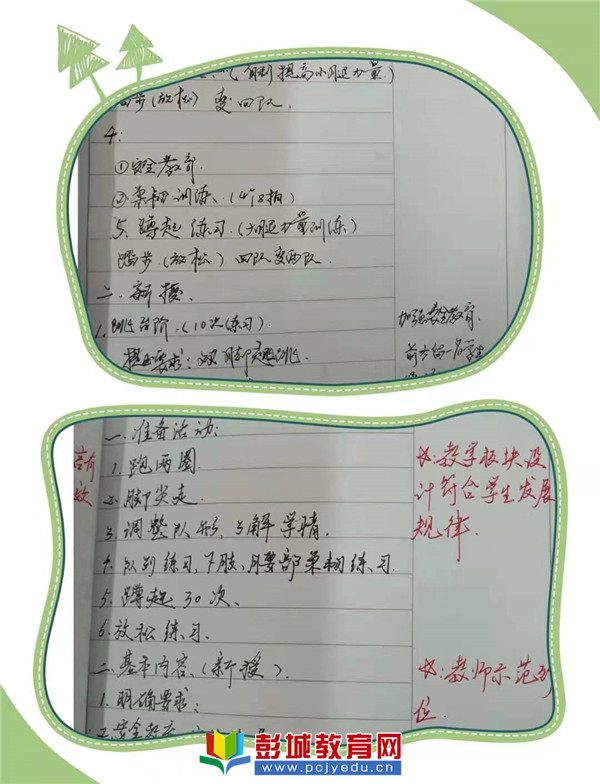 （有利提高小腿力量）
踏步（放松）变四队.
4:
①安全教育
②柔韧训练.（4个8拍）
5. 蹲起练习.（大腿力量训练）
踏步（放松.）四队变两队.
二. 新授.
1. 跳台阶.（10次练习）.
要求：双脚起跳.
加强安全教育.
前方的一名学生
一. 准备活动：
1. 跑两圈
2. 脚尖走.
3. 调整队形, 了解学情.
4. 队列练习, 下肢, 腰部柔韧练习.
5. 蹲起30次、
6. 放松练习.
二. 基本内容.（新授）.
1. 明确要求：
2. 安全
高效
女：教学板块设
计符合学生发展
规律.
女：教师示范到
位.
彭城教育网
www.pcjyedu.cn